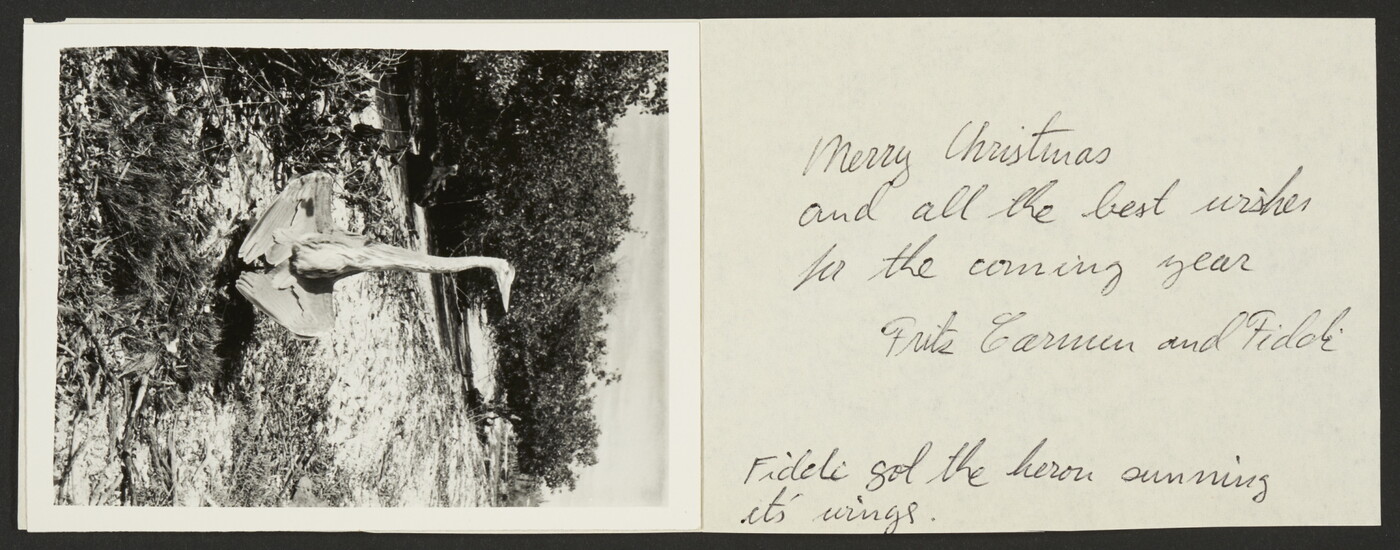 Merry Christmas
and all the best wishes
for the coming year
Fritz Carmen and Fiddi
Fiddi got the heron sunning
it's wings.